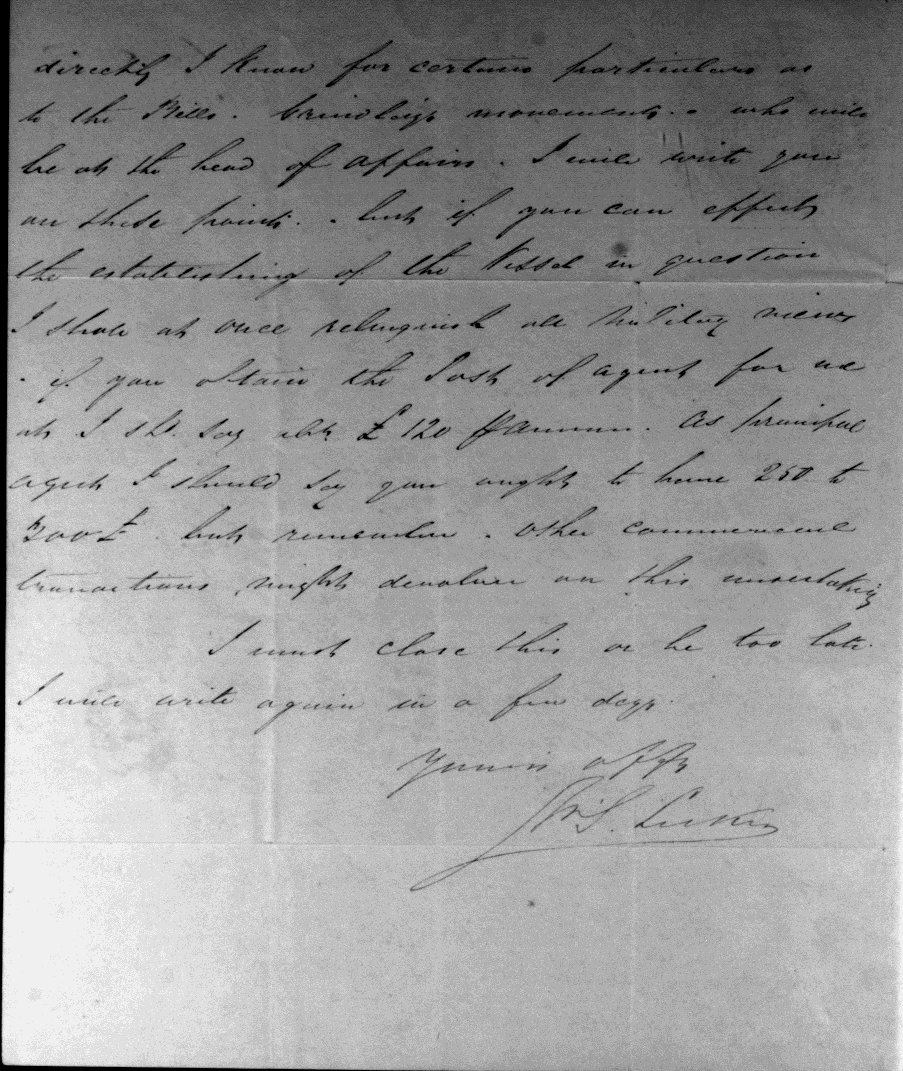 directly I know for certain particulars as
to the Bills. movements. who will
be at the head of affairs. I will write you
on these points. - but if you can effect
the establishing of the Vessel in question
I shall at once relinquish all Military views
- if you obtain the Post of agent for us
at I shd. say abt £120 P annum. As principal
agent I should say you ought to have 250 to
300£. but remember. other commercial
transactions might devolve on this undertaking
I must close this or be too late.
I will write again in a few days.
Yours affy